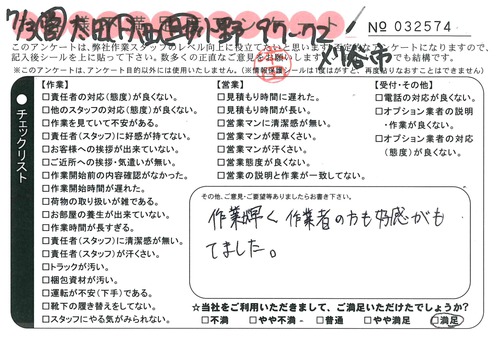 № 032574
このアンケートは、弊社作業スタッフのレベル向上に役立てたいと思います。否定的なアンケートになりますので、
記入後シールを上に貼って下さい。数多くの正直なご意見をお願いします
でも結構です。
(※このアンケートは、アンケート目的以外には使用いたしません。(※情報保護シールは1度はがすと、再度貼りなおすことはできません)
チェックリスト
【作業】
□責任者の対応(態度)が良くない。
□他のスタッフの対応(態度)が良くない。
□作業を見ていて不安がある。
□責任者(スタッフ)に好感が持てない。
□お客様への挨拶が出来ていない。
□ご近所への挨拶・気遣いが無い。
□作業開始前の内容確認がなかった。
□作業開始時間が遅れた。
□荷物の取り扱いが雑である。
□お部屋の養生が出来ていない。
□作業時間が長すぎる。
□責任者(スタッフ)に清潔感が無い。
□責任者(スタッフ)が汗くさい。
□トラックが汚い。
□梱包資材が汚い。
□運転が不安(下手)である。
□靴下の履き替えをしない。
□スタッフにやる気がみられない。
【営業】
□見積もり時間に遅れた。
□見積もり時間が長い。
□営業マンに清潔感が無い。
□営業マンが煙草くさい。
□営業マンが汗くさい。
□営業態度が良くない。
□営業の説明と作業が一致してない。
【受付・その他】
□電話の対応が良くない。
□オプション業者の説明
・作業が良くない。
□オプション業者の対応
(態度)が良くない。
その他、ご意見・ご要望等ありましたらお書き下さい。
く作業者の方も好感がも
てました。
☆当社をご利用いただきまして、ご満足いただけたでしょうか?
□不満 □やや不満 □普通 □やや満足 □満足